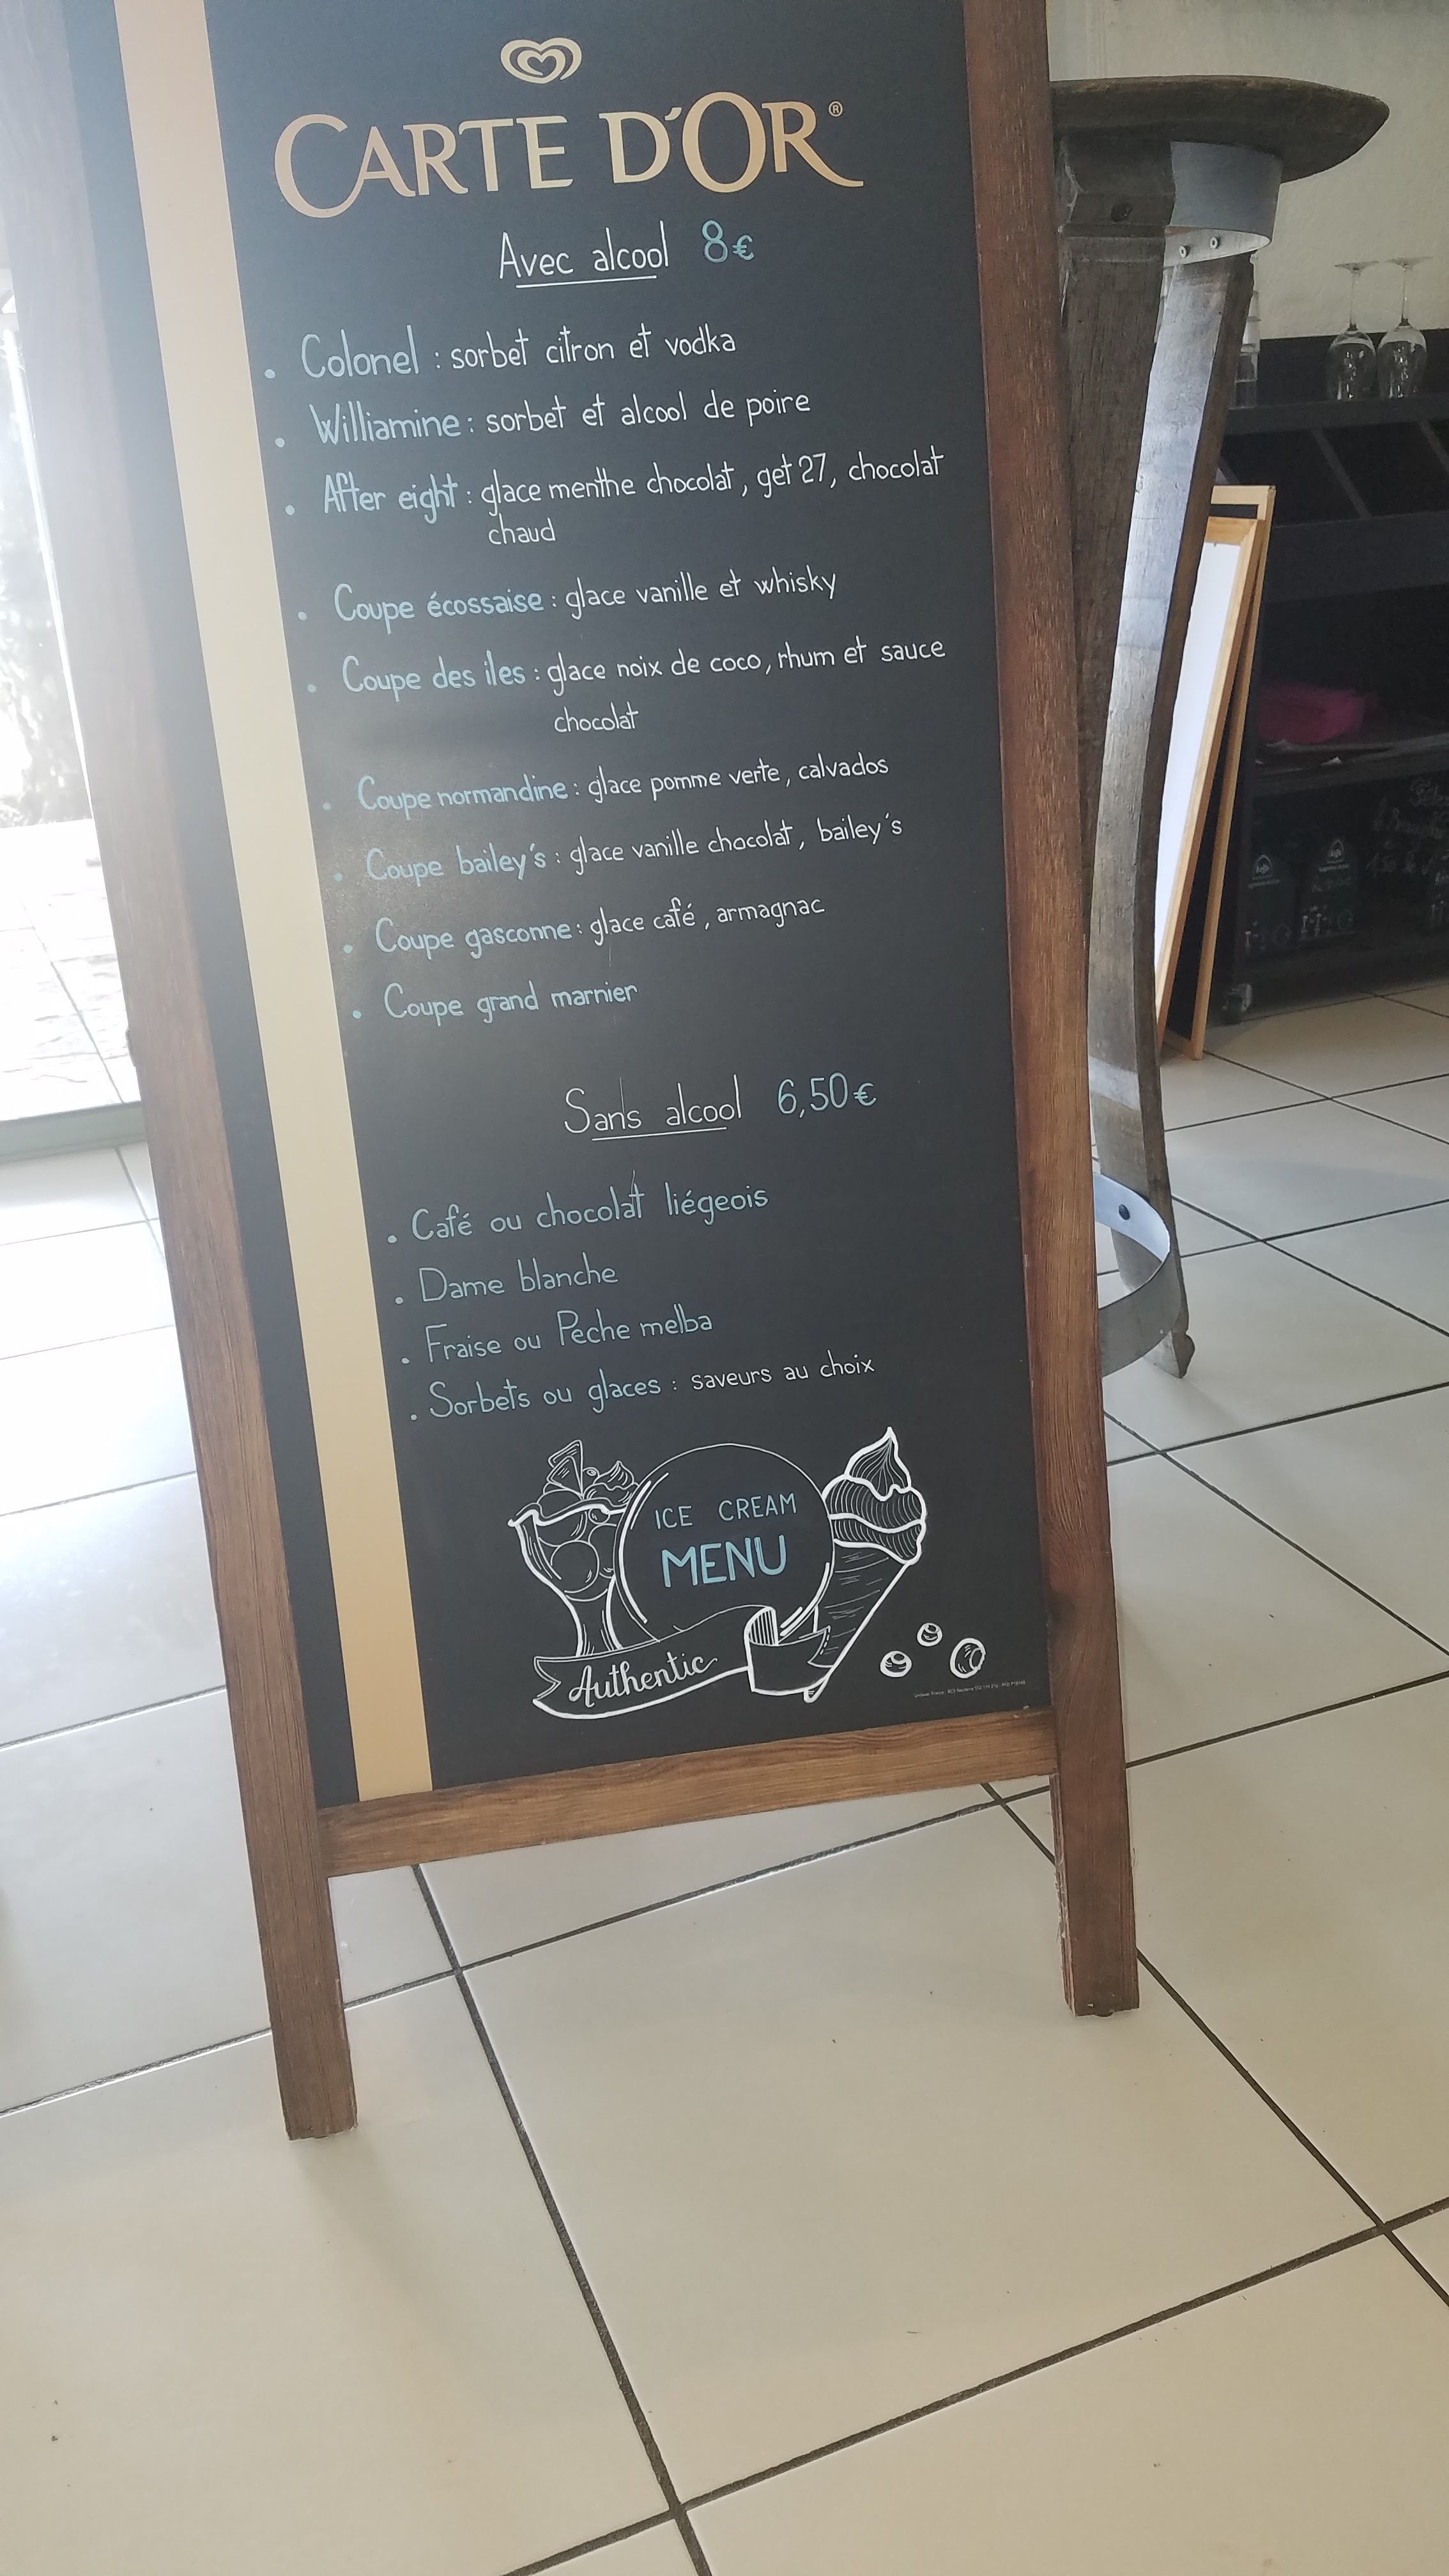 CARTE D'OR®
Avec alcool 8€
. Colonel : sorbet citron et vodka
. Williamine : sorbet et alcool de poire
. After eight : glace menthe chocolat, get 27, chocolat
chaud
. Coupe écossaise : glace vanille et whisky
. Coupe des iles : glace noix de coco, rhum et sauce
chocolat
. Coupe normandine : glace pomme verte, calvados
. Coupe bailey's : glace vanille chocolat, bailey's
. Coupe gasconne : glace café, armagnac
. Coupe grand marnier
Sans alcool 6,50€
. Café ou chocolat liégeois
. Dame blanche
. Fraise ou Peche melba
. Sorbets ou glaces : saveurs au choix
ICE CREAM
MENU
Authentic